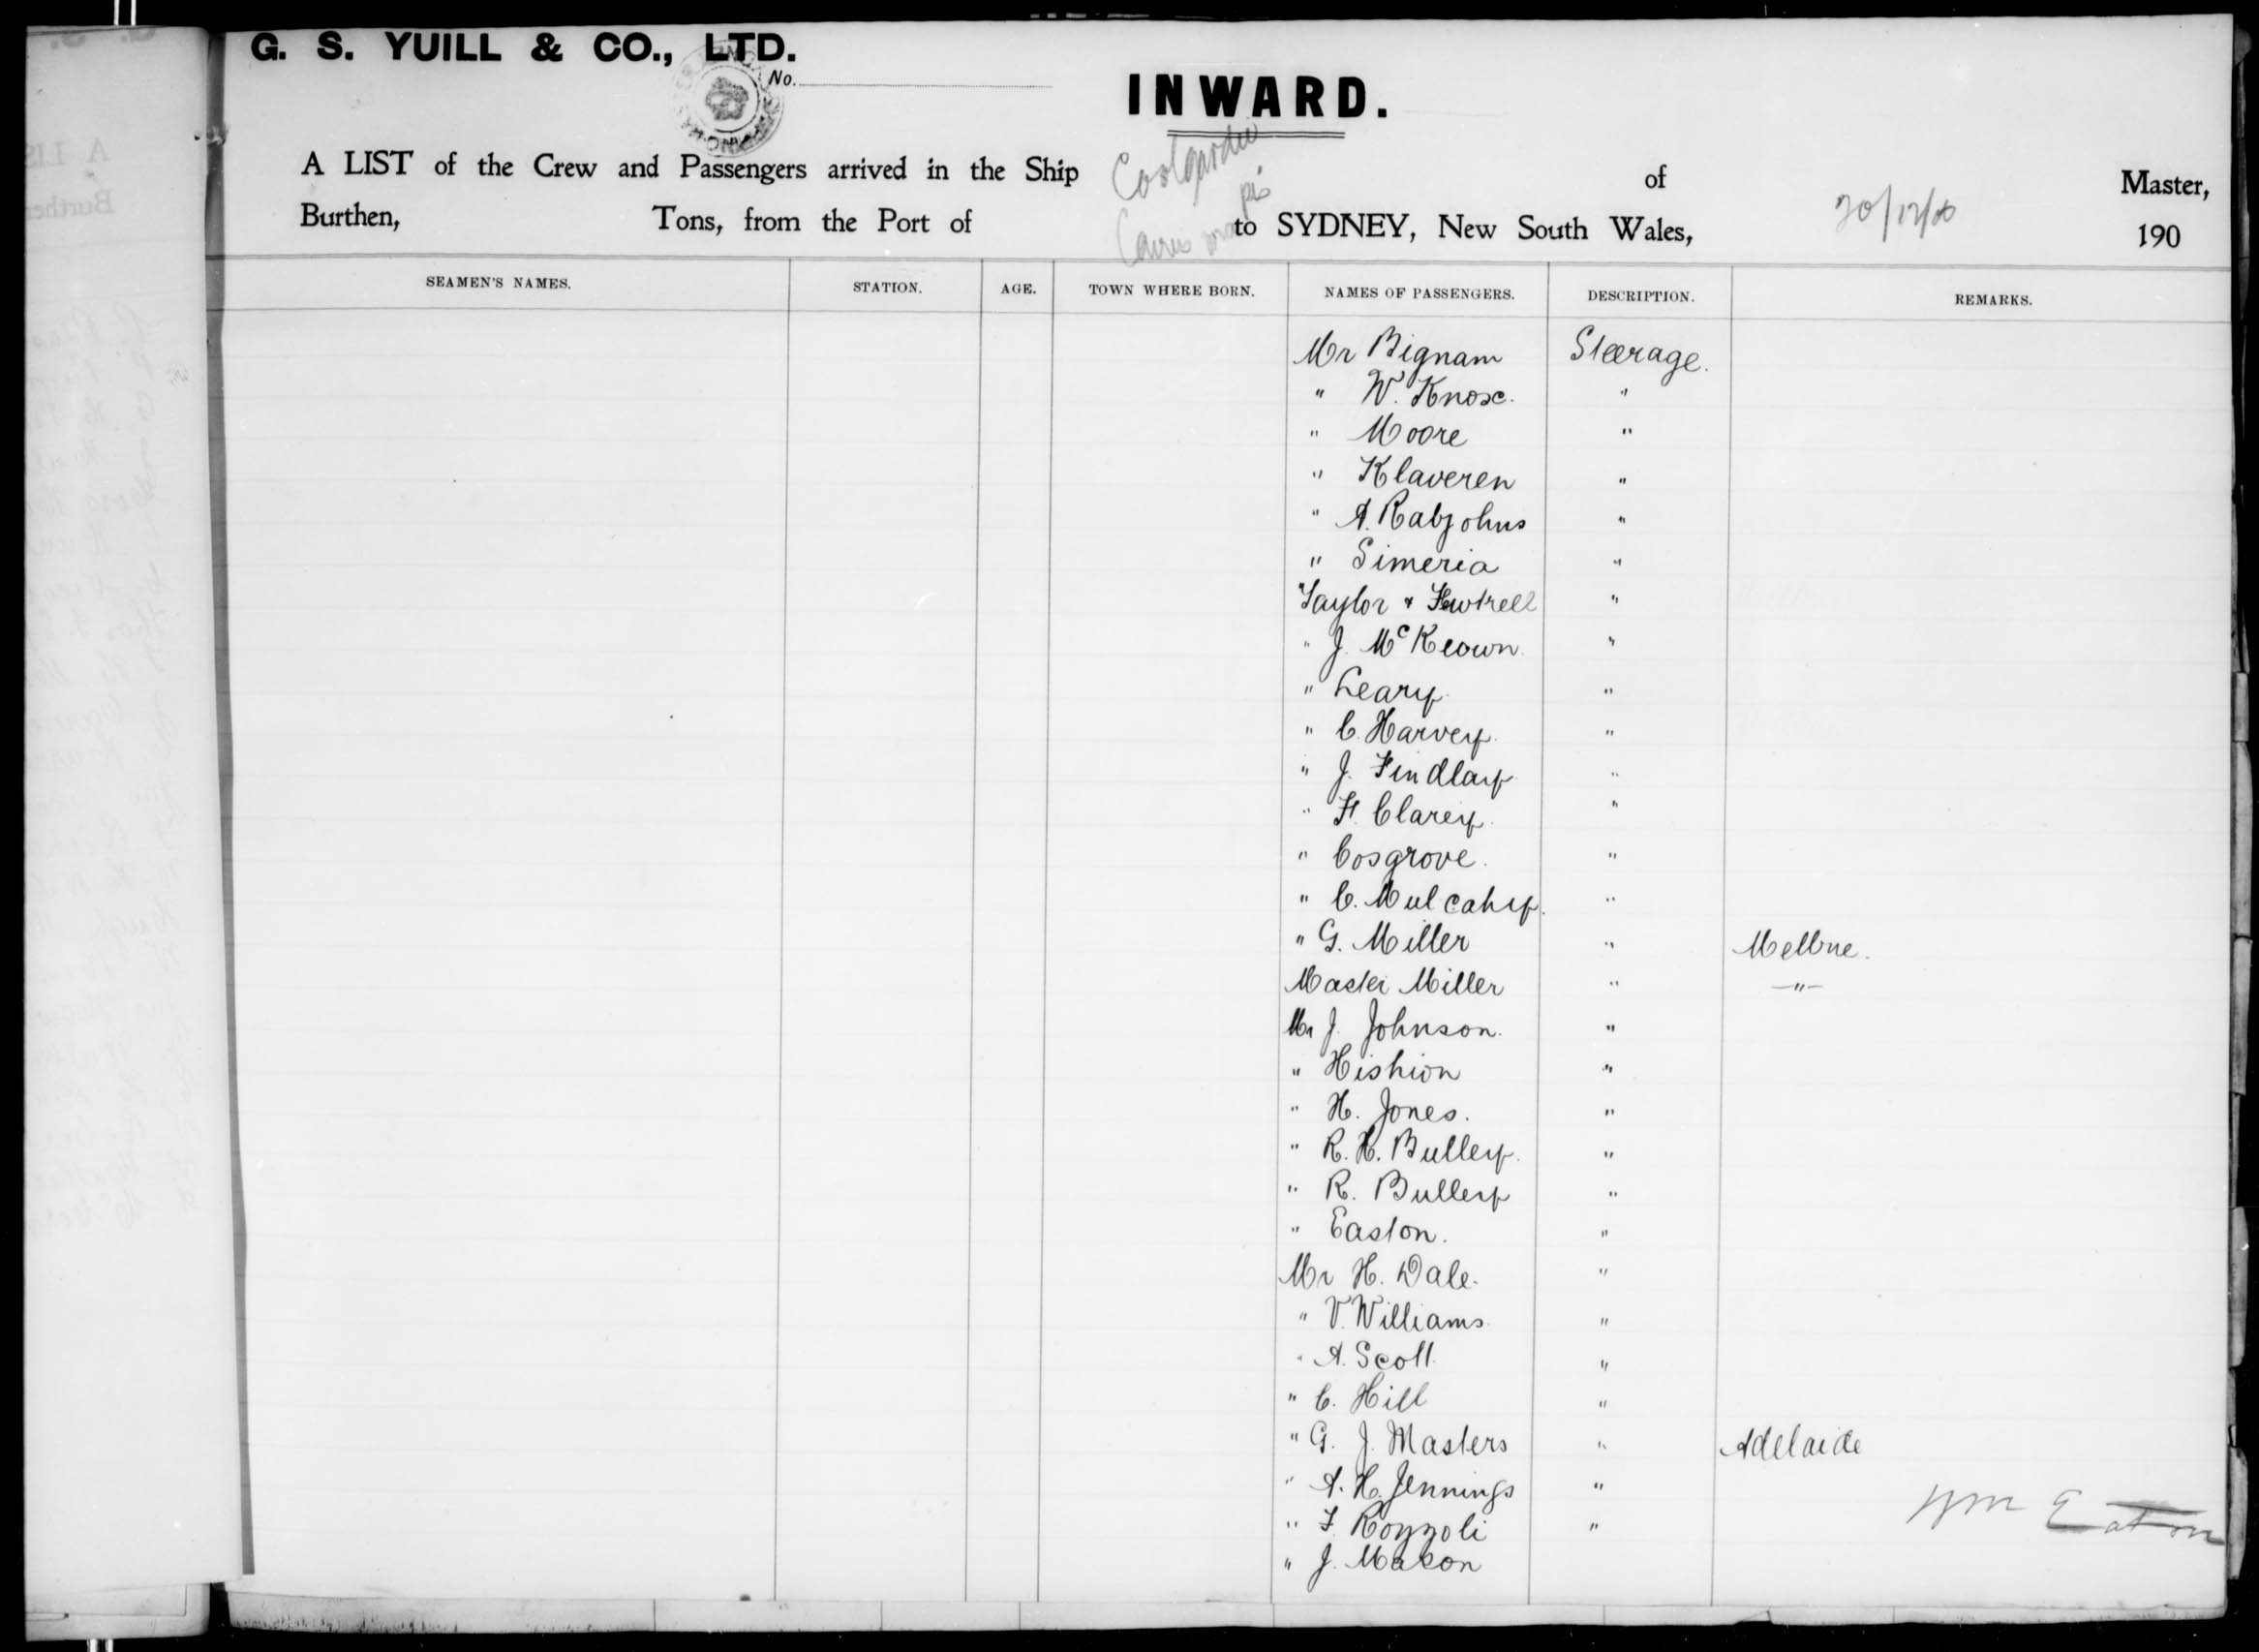 G. S. YUILL & CO., LTD.
No.
INWARD.
A LIST of the Crew and Passengers arrived in the Ship Coolgardie of Master,
Burthen, Tons, from the Port of Cairns to SYDNEY, New South Wales, 20/12/06 190
SEAMEN'S NAMES. STATION. AGE. TOWN WHERE BORN. NAMES OF PASSENGERS. DESCRIPTION. REMARKS.
Mr Bignam Steerage.
" W. Knox. "
" Moore "
" Klaveren "
" A. Rabjohns "
" Simeria "
" Taylor & Fewtrell "
" J. McKeown "
" Leary "
" C. Harvey "
" J. Findlay "
" F. Clarey "
" Cosgrove. "
" C. Mulcahy. "
" G. Miller " Melbne.
Master Miller " —"—
Mr J. Johnson. "
" Hishion "
" H. Jones. "
" R. H. Bulley. "
" R. Bulley "
" Easton. "
Mr H. Dale. "
" V. Williams "
" A. Scott "
" C. Hill "
" G. J. Masters " Adelaide
" A. H. Jennings "
" F. Rozzoli "
" J. Mason
Wm Eaton